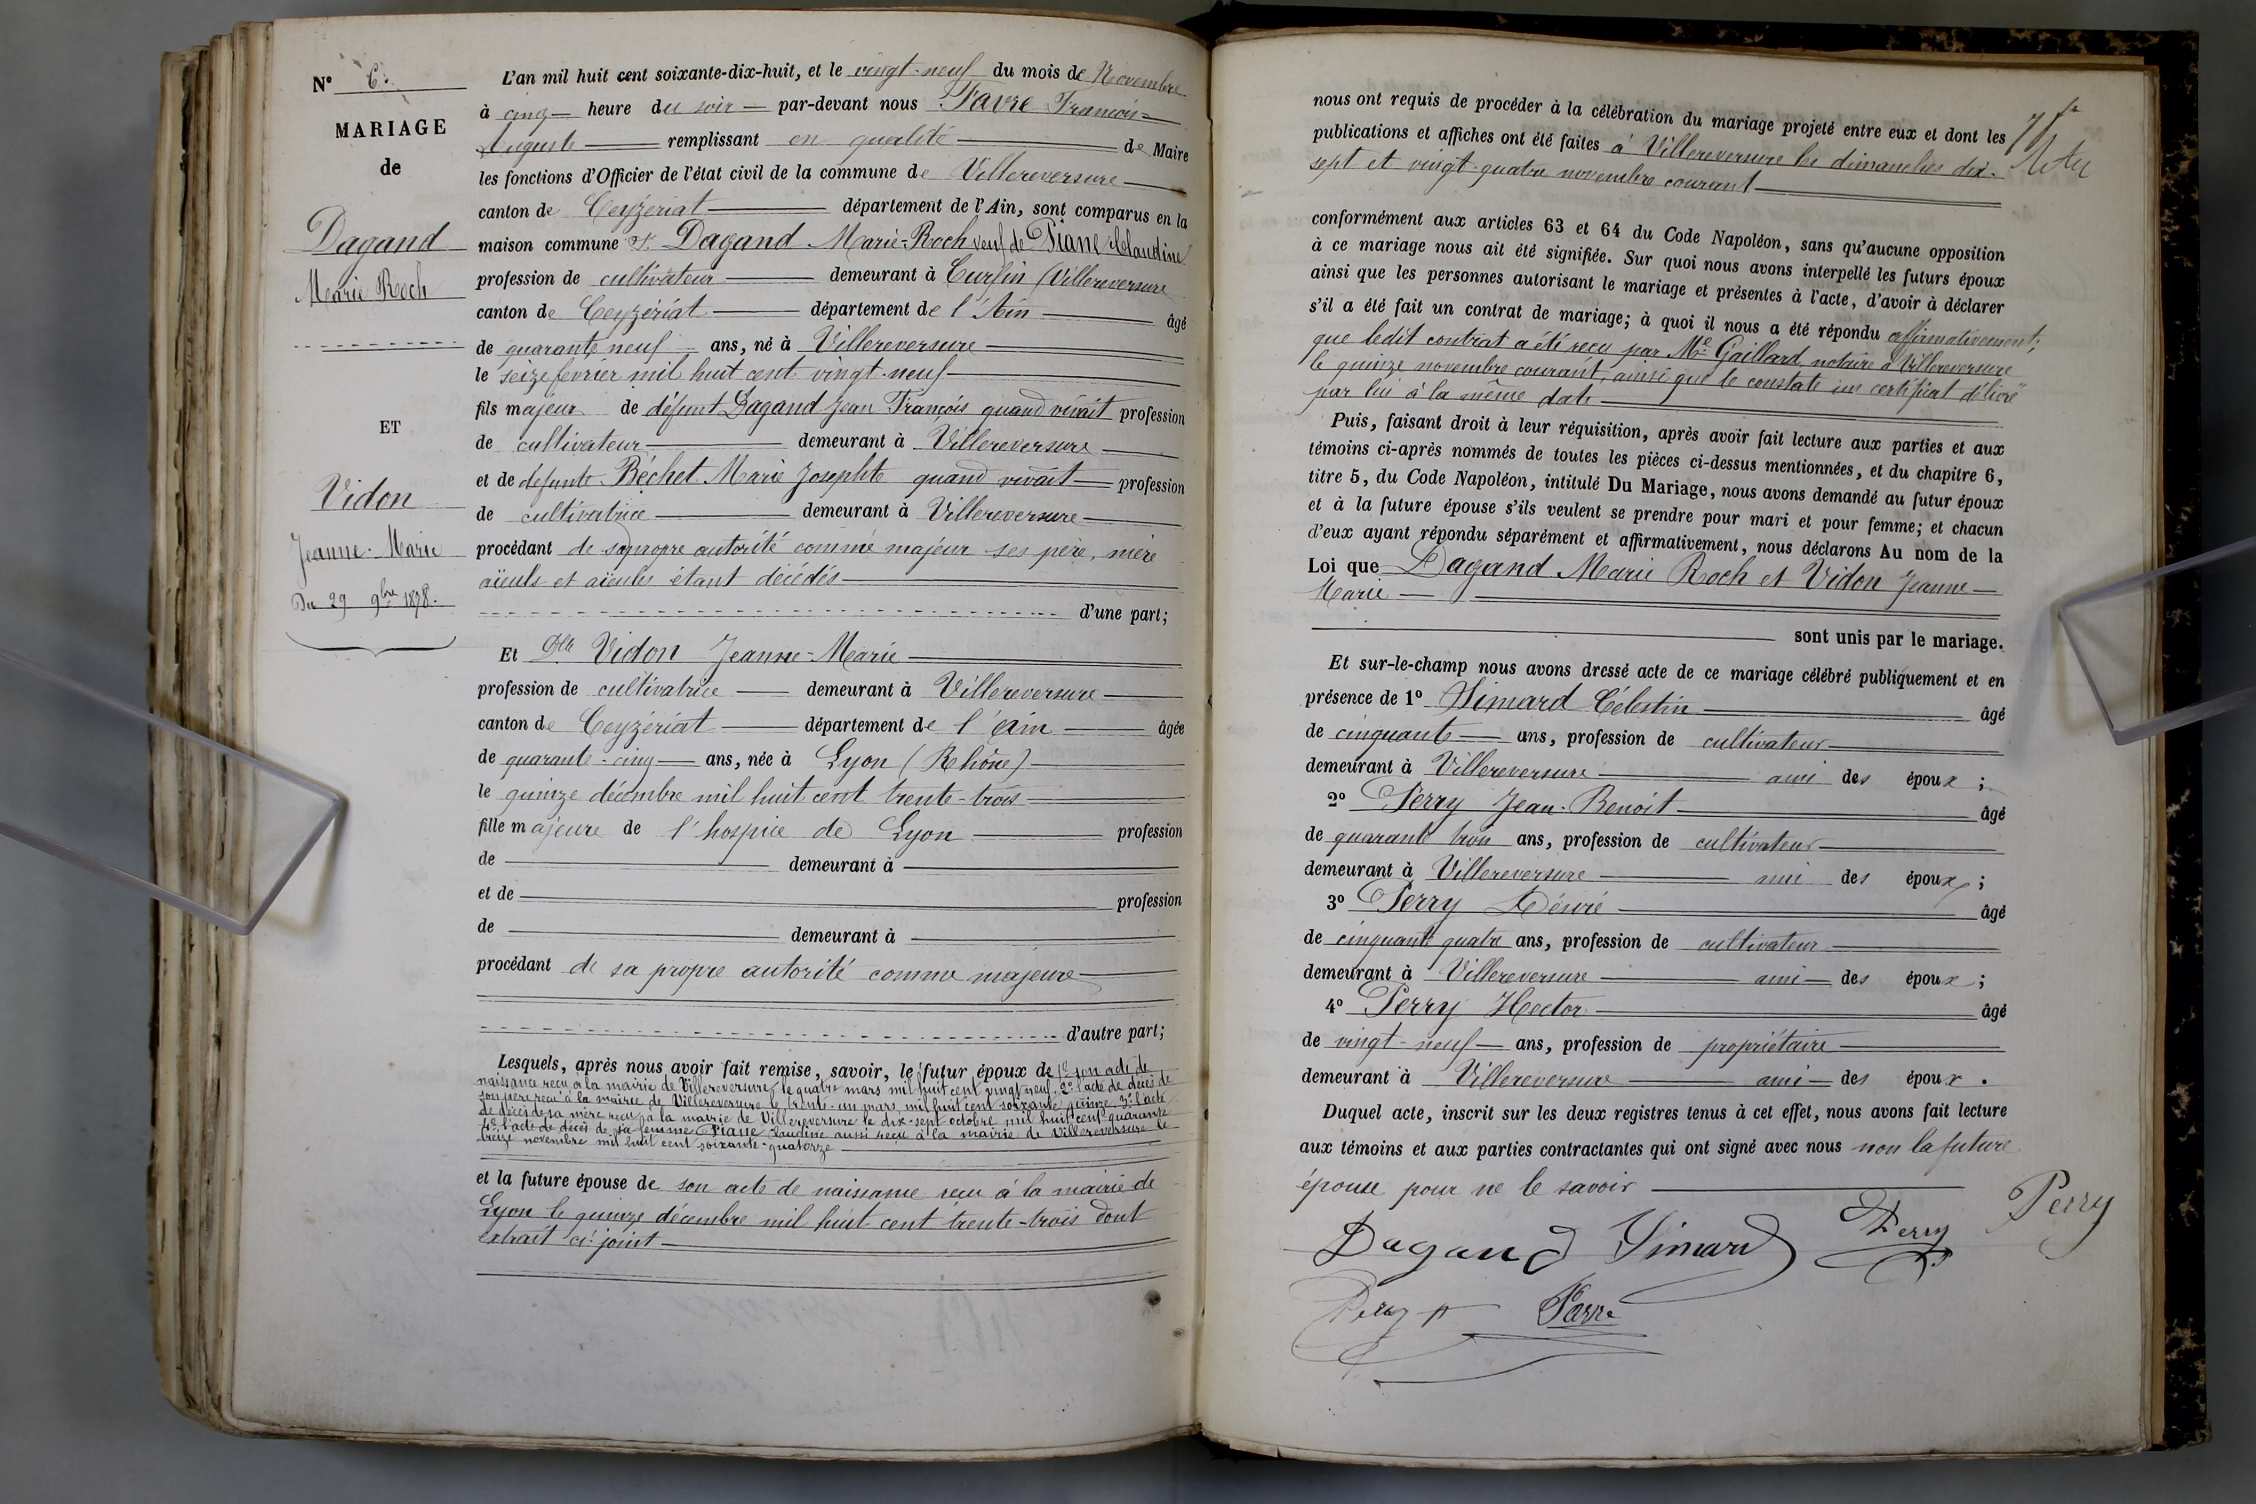 N° 6.
MARIAGE
de
Dagand
Marie Roch
ET
Vidon
Jeanne-Marie
Du 29 9bre 1878.
L'an mil huit cent soixante-dix-huit, et le vingt-neuf du mois de Novembre
à cinq heure du soir par-devant nous Favre François-
Auguste remplissant en qualité de Maire
les fonctions d'Officier de l'état civil de la commune de Villereversure
canton de Ceyzériat département de l'Ain, sont comparus en la
maison commune Sr. Dagand Marie-Roch veuf de Piane Claudine
profession de cultivateur demeurant à Curfin (Villereversure
canton de Ceyzériat département de l'Ain âgé
de quarante neuf ans, né à Villereversure
le seize février mil huit cent vingt-neuf
fils majeur de défunt Dagand Jean François quand vivait profession
de cultivateur demeurant à Villereversure
et de défunte Béchet Marie Josephte quand vivait profession
de cultivatrice demeurant à Villereversure
procédant de sa propre autorité comme majeur ses père, mère
aïeuls et aïeules étant décédés
d'une part;
Et Dlle Vidon Jeanne-Marie
profession de cultivatrice demeurant à Villereversure
canton de Ceyzériat département de l'Ain âgée
de quarante-cinq ans, née à Lyon (Rhône)
le quinze décembre mil huit cent trente-trois
fille majeure de l'hospice de Lyon profession
de demeurant à
et de profession
de demeurant à
procédant de sa propre autorité comme majeure
d'autre part;
Lesquels, après nous avoir fait remise, savoir, le futur époux de 1° son acte de
naissance reçu à la mairie de Villereversure le quatre mars mil huit cent vingt neuf, 2° l'acte de décès de
son père reçu à la mairie de Villereversure le trente-un mars mil huit cent soixante quinze, 3° l'acte
de décès de sa mère reçu à la mairie de Villereversure le dix-sept octobre mil huit cent quarante
4° l'acte de décès de sa femme Piane Claudine aussi reçu à la mairie de Villereversure le
treize novembre mil huit cent soixante-quatorze
et la future épouse de son acte de naissance reçu à la mairie de
Lyon le quinze décembre mil huit cent trente-trois dont
extrait ci-joint
nous ont requis de procéder à la célébration du mariage projeté entre eux et dont les
publications et affiches ont été faites à Villereversure les dimanches dix-
sept et vingt-quatre novembre courant
conformément aux articles 63 et 64 du Code Napoléon, sans qu'aucune opposition
à ce mariage nous ait été signifiée. Sur quoi nous avons interpellé les futurs époux
ainsi que les personnes autorisant le mariage et présentes à l'acte, d'avoir à déclarer
s'il a été fait un contrat de mariage; à quoi il nous a été répondu affirmativement;
que ledit contrat a été reçu par Me Gaillard notaire à Villereversure
le quinze novembre courant, ainsi que le constate un certificat délivré
par lui à la même date
Puis, faisant droit à leur réquisition, après avoir fait lecture aux parties et aux
témoins ci-après nommés de toutes les pièces ci-dessus mentionnées, et du chapitre 6,
titre 5, du Code Napoléon, intitulé Du Mariage, nous avons demandé au futur époux
et à la future épouse s'ils veulent se prendre pour mari et pour femme; et chacun
d'eux ayant répondu séparément et affirmativement, nous déclarons Au nom de la
Loi que Dagand Marie Roch et Vidon Jeanne-
Marie
sont unis par le mariage.
Et sur-le-champ nous avons dressé acte de ce mariage célébré publiquement et en
présence de 1° Simard Célestin âgé
de cinquante ans, profession de cultivateur
demeurant à Villereversure ami des époux ;
2° Perry Jean-Benoit âgé
de quarante trois ans, profession de cultivateur
demeurant à Villereversure ami des époux ;
3° Perry Désiré âgé
de cinquante quatre ans, profession de cultivateur
demeurant à Villereversure ami des époux ;
4° Perry Hector âgé
de vingt-neuf ans, profession de propriétaire
demeurant à Villereversure ami des époux .
Duquel acte, inscrit sur les deux registres tenus à cet effet, nous avons fait lecture
aux témoins et aux parties contractantes qui ont signé avec nous non la future
épouse pour ne le savoir
Dagand Simard Perry Perry
Perry Favre